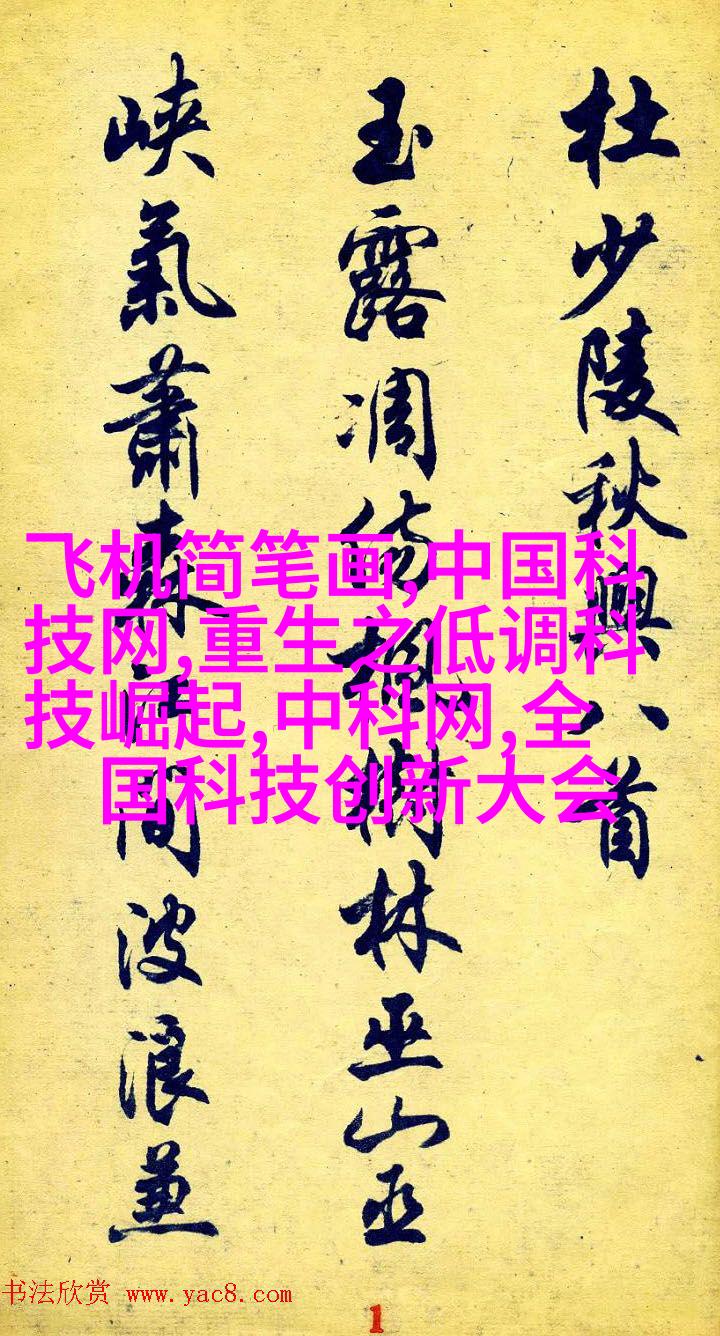 杜少陵秋興八首
玉露凋傷楓樹林巫山巫
峽氣蕭森江間波浪兼
飞机简笔画,中国科
技网,重生之低调科
技崛起,中科网,全
国科技创新大会
书法欣赏 www.yac8.com
1